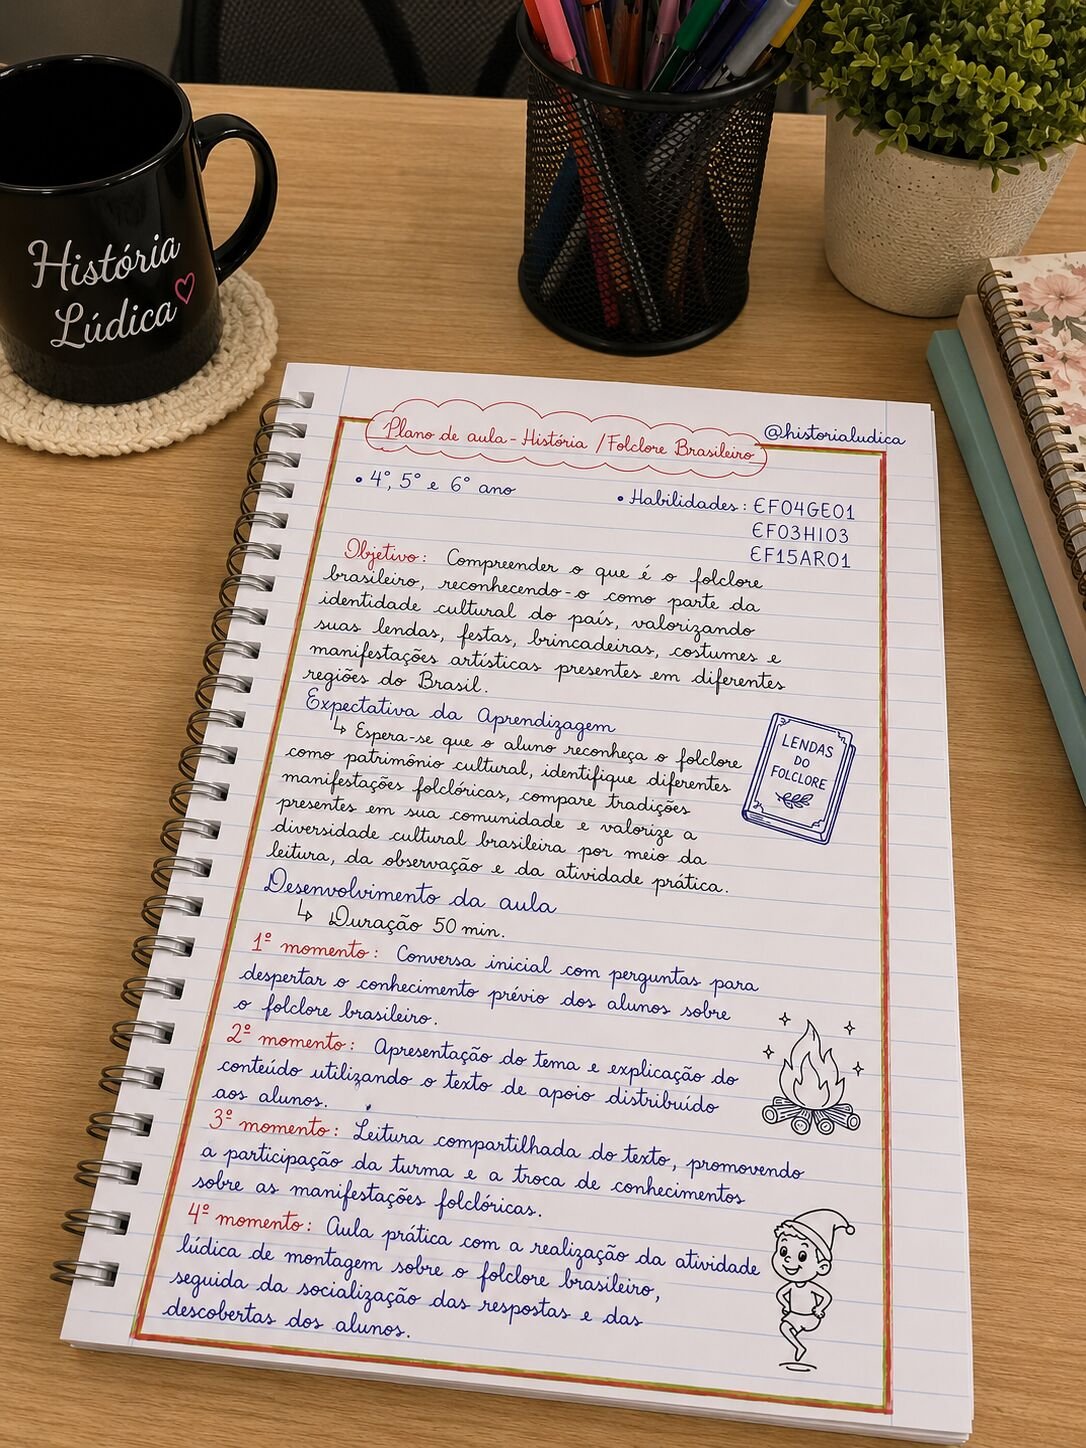 História
Lúdica
Plano de aula - História / Folclore Brasileiro
@historialudica
• 4º, 5º e 6º ano
• Habilidades: EF04GE01
EF03HI03
EF15AR01
Objetivo: Compreender o que é o folclore
brasileiro, reconhecendo-o como parte da
identidade cultural do país, valorizando
suas lendas, festas, brincadeiras, costumes e
manifestações artísticas presentes em diferentes
regiões do Brasil.
Expectativa da Aprendizagem
↳ Espera-se que o aluno reconheça o folclore
como patrimônio cultural, identifique diferentes
manifestações folclóricas, compare tradições
presentes em sua comunidade e valorize a
diversidade cultural brasileira por meio da
leitura, da observação e da atividade prática.
LENDAS
DO
FOLCLORE
Desenvolvimento da aula
↳ Duração 50 min.
1º momento: Conversa inicial com perguntas para
despertar o conhecimento prévio dos alunos sobre
o folclore brasileiro.
2º momento: Apresentação do tema e explicação do
conteúdo utilizando o texto de apoio distribuído
aos alunos.
3º momento: Leitura compartilhada do texto, promovendo
a participação da turma e a troca de conhecimentos
sobre as manifestações folclóricas.
4º momento: Aula prática com a realização da atividade
lúdica de montagem sobre o folclore brasileiro,
seguida da socialização das respostas e das
descobertas dos alunos.